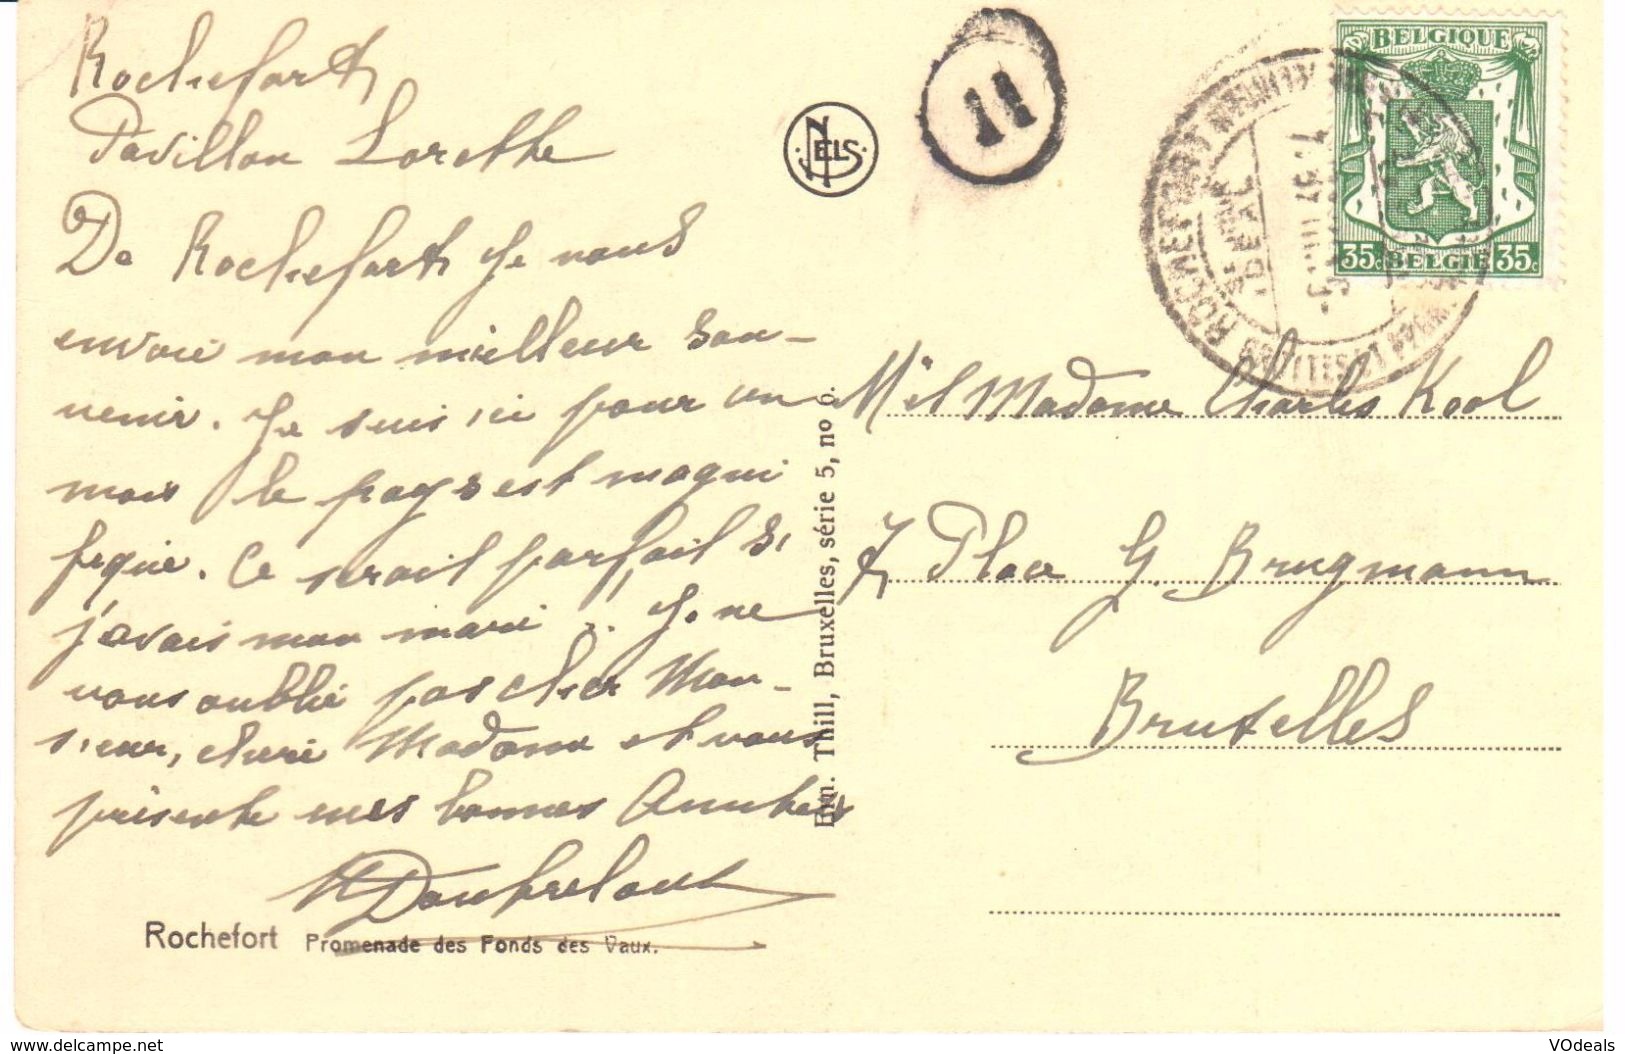 Rochefort
Pavillon Lorethe
De Rochefort je vous
envoie mon meilleur sou-
venir. Je suis ici pour un
mois le pays est magni
fique. Ce serait parfait si
j'avais mon mari !. Je ne
vous oublie pas cher Mon-
sieur, cheri Madame et vous
présente mes bonnes Amitiés
Rochefort Promenade des Fonds des Vaux.
NELS
Em. Thill, Bruxelles, série 5, no 6.
11
BELGIQUE
35c BELGIE 35c
ROCHEFORT
IDEAL
Mr et Madame Charles Kool
7, Place G. Brugmann
Bruxelles
www.delcampe.net
VOdeals